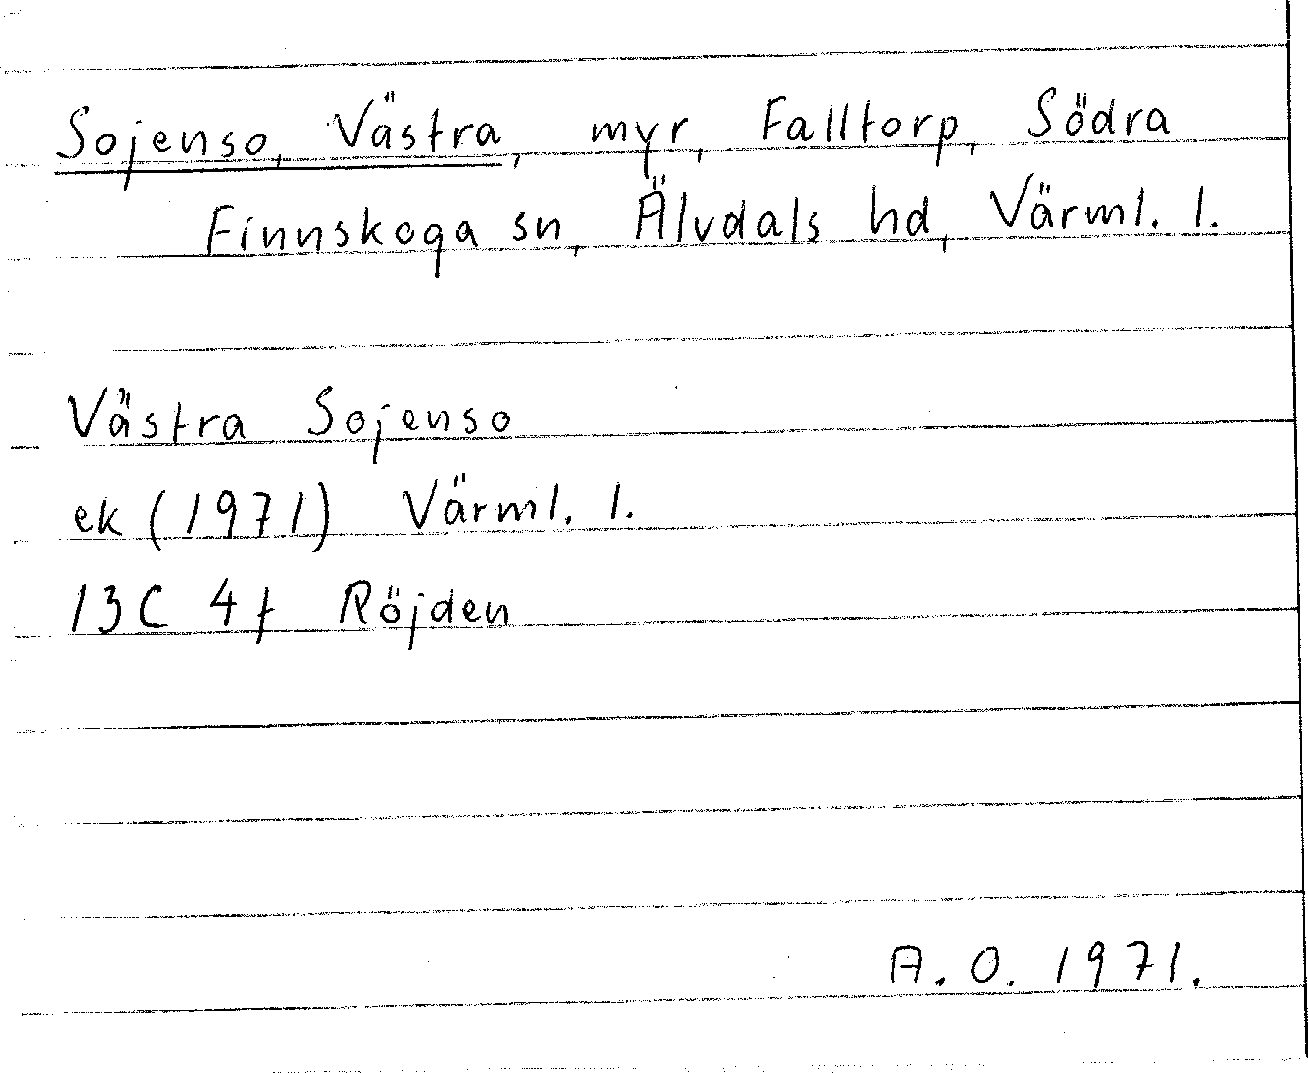 Sojenso, Västra, myr, Falltorp, Södra
Finnskoga sn, Älvdals hd, Värml. l.
Västra Sojenso
ek (1971) Värml. l.
13C 4f Röjden
A.O. 1971.